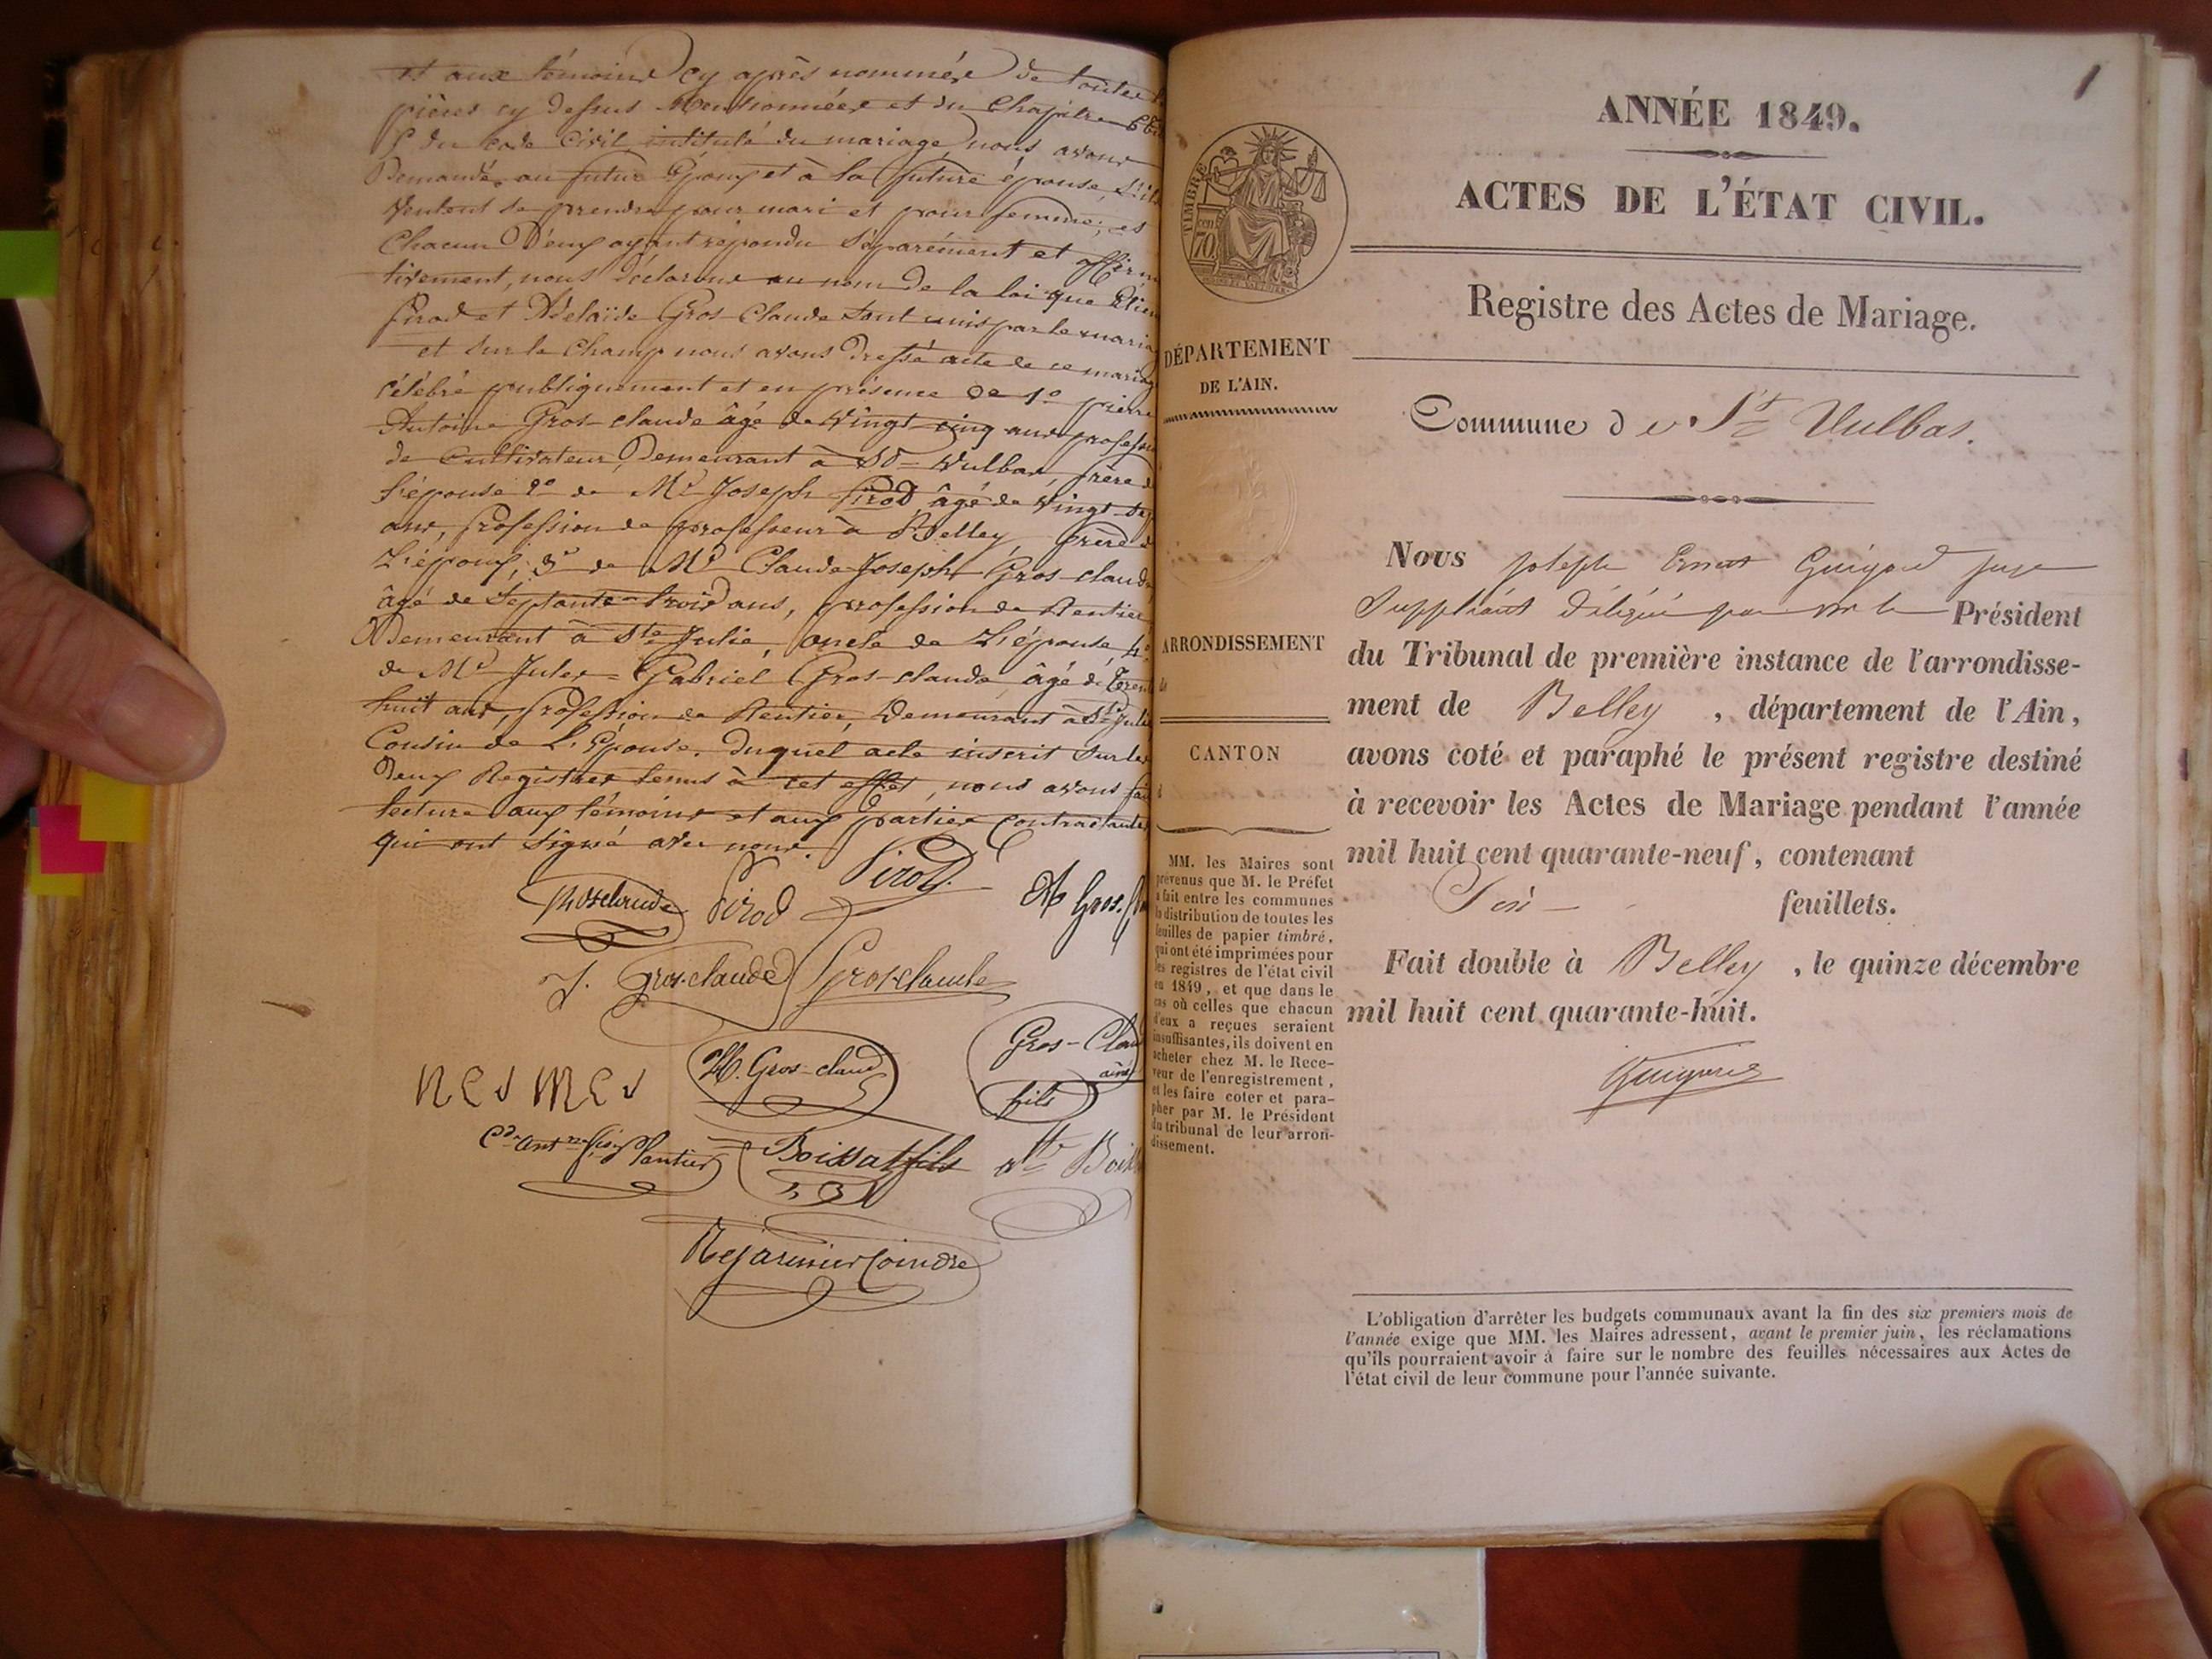 et aux témoins cy après nommés de toutes
pièces cy dessus Mentionnées et du Chapitre
du code Civil intitulé du mariage, nous avons
Demandé au futur Epoux et à la future épouse, s'ils
Veulent se prendre pour mari et pour femme; et
Chacun D'eux ayant répondu Séparément et affirma
tivement, nous Déclarons au nom de la loi que
Pirod et Adélaïde Gros-Claude Sont unis par le maria
et Sur le Champ nous avons Dressé acte de ce mariag
célébré publiquement et en présence de 1° pierre
Antoine Gros-claude âgé de Vingt-cinq ans profession
de Cultivateur, Demeurant à St= Vulbas, frère
L'épouse 2° de Mr Joseph Pirod âgé de Vingt
ans, profession de professeur à Belley, frère
L'époux; 3° de Mr Claude-Joseph Gros-claude
âgé de Septante-trois ans, profession de Rentier
Demeurant à Ste Julie, oncle de L'épouse 4°
de Mr Jules=Gabriel Gros-claude âgé de
huit ans, profession de Rentier, Demeurant à Ste Julie
Cousin de L'Epouse. Duquel acte inscrit Sur les
Deux Registres tenus à cet effet, nous avons fai
lecture aux témoins et aux parties Contractantes
qui ont Signé avec nous.
Pirod
Pirod
J. Gros-claude Grosclaude
H. Gros-claud
Gros-Clau
aîné
fils
Plantier Boissat fils
Rejarmier Coindre
1
ANNÉE 1849.
ACTES DE L'ÉTAT CIVIL.
Registre des Actes de Mariage.
TIMBRE
70
DÉPARTEMENT
DE L'AIN.
Commune de St Vulbas.
ARRONDISSEMENT
CANTON
Nous Joseph Ernest Guigard juge
Suppléant Délégué par Mr le Président
du Tribunal de première instance de l'arrondisse-
ment de Belley, département de l'Ain,
avons coté et paraphé le présent registre destiné
à recevoir les Actes de Mariage pendant l'année
mil huit cent quarante-neuf, contenant
feuillets.
Fait double à Belley, le quinze décembre
mil huit cent quarante-huit.
MM. les Maires sont
prévenus que M. le Préfet
a fait entre les communes
la distribution de toutes les
feuilles de papier timbré,
qui ont été imprimées pour
les registres de l'état civil
en 1849, et que dans le
cas où celles que chacun
d'eux a reçues seraient
insuffisantes, ils doivent en
acheter chez M. le Rece-
veur de l'enregistrement,
et les faire coter et para-
pher par M. le Président
du tribunal de leur arron-
dissement.
L'obligation d'arrêter les budgets communaux avant la fin des six premiers mois de
l'année exige que MM. les Maires adressent, avant le premier juin, les réclamations
qu'ils pourraient avoir à faire sur le nombre des feuilles nécessaires aux Actes de
l'état civil de leur commune pour l'année suivante.